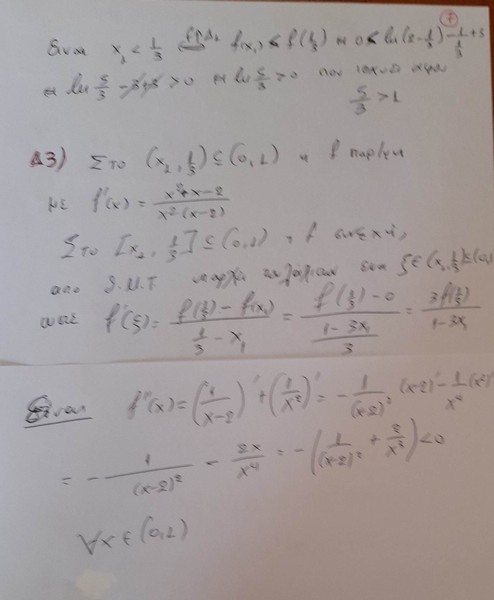 7
Είναι x₁ < 1/3 ⟺ f(x₁) < f(1/3) ⟺ 0 < ln(2 - 1/3) - 1/(1/3) + 3
⟺ ln 5/3 - 3 + 3 > 0 ⟺ ln 5/3 > 0 που ισχύει αφού
5/3 > 1
Δ3) Στο (x₁, 1/3) ⊆ (0,2) η f παρ/μη
με f'(x) = (x² + x - 2)/(x² (x-2))
Στο [x₁, 1/3] ⊆ (0,2) η f συνεχής,
από Θ.Μ.Τ υπάρχει τουλάχιστον ένα ξ ∈ (x₁, 1/3) ⊆ (0,
ώστε f'(ξ) = (f(1/3) - f(x₁))/(1/3 - x₁) = (f(1/3) - 0)/((1 - 3x₁)/3) = 3f(1/3)/(1 - 3x₁)
Είναι f''(x) = (1/(x-2))' + (1/x²)' = - 1/(x-2)² (x-2)' - 1/x⁴ (x²)'
= - 1/(x-2)² - 2x/x⁴ = - (1/(x-2)² + 2/x³) < 0
∀x ∈ (0,2)